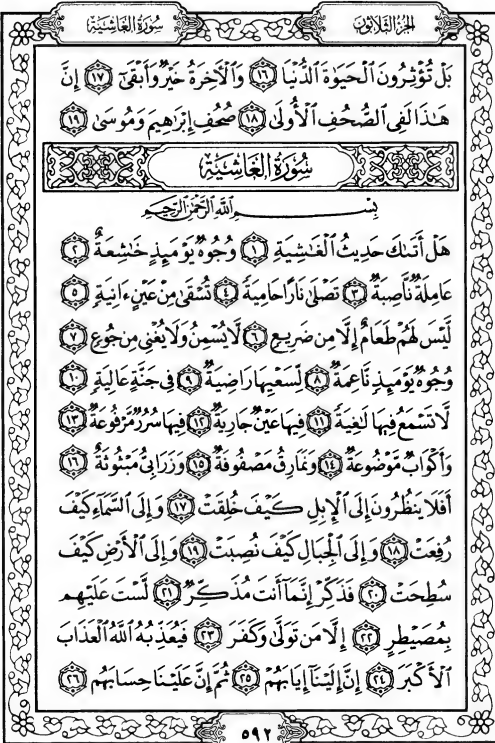 سُورَةُ الْغَاشِيَةِ الجُزْءُ الثَّلَاثُونَ
بَلْ تُؤْثِرُونَ ٱلْحَيَوٰةَ ٱلدُّنْيَا ١٦ وَٱلْأَخِرَةُ خَيْرٌ وَأَبْقَىٰٓ ١٧ إِنَّ
هَٰذَا لَفِى ٱلصُّحُفِ ٱلْأُولَىٰ ١٨ صُحُفِ إِبْرَٰهِيمَ وَمُوسَىٰ ١٩
سُورَةُ الْغَاشِيَةِ
بِسْمِ ٱللَّهِ ٱلرَّحْمَٰنِ ٱلرَّحِيمِ
هَلْ أَتَىٰكَ حَدِيثُ ٱلْغَٰشِيَةِ ١ وُجُوهٌ يَوْمَئِذٍ خَٰشِعَةٌ ٢
عَامِلَةٌ نَّاصِبَةٌ ٣ تَصْلَىٰ نَارًا حَامِيَةً ٤ تُسْقَىٰ مِنْ عَيْنٍ ءَانِيَةٍ ٥
لَّيْسَ لَهُمْ طَعَامٌ إِلَّا مِن ضَرِيعٍ ٦ لَّا يُسْمِنُ وَلَا يُغْنِى مِن جُوعٍ ٧
وُجُوهٌ يَوْمَئِذٍ نَّاعِمَةٌ ٨ لِّسَعْيِهَا رَاضِيَةٌ ٩ فِى جَنَّةٍ عَالِيَةٍ ١٠
لَّا تَسْمَعُ فِيهَا لَٰغِيَةً ١١ فِيهَا عَيْنٌ جَارِيَةٌ ١٢ فِيهَا سُرُرٌ مَّرْفُوعَةٌ ١٣
وَأَكْوَابٌ مَّوْضُوعَةٌ ١٤ وَنَمَارِقُ مَصْفُوفَةٌ ١٥ وَزَرَابِىُّ مَبْثُوثَةٌ ١٦
أَفَلَا يَنظُرُونَ إِلَى ٱلْإِبِلِ كَيْفَ خُلِقَتْ ١٧ وَإِلَى ٱلسَّمَآءِ كَيْفَ
رُفِعَتْ ١٨ وَإِلَى ٱلْجِبَالِ كَيْفَ نُصِبَتْ ١٩ وَإِلَى ٱلْأَرْضِ كَيْفَ
سُطِحَتْ ٢٠ فَذَكِّرْ إِنَّمَآ أَنتَ مُذَكِّرٌ ٢١ لَّسْتَ عَلَيْهِم
بِمُصَيْطِرٍ ٢٢ إِلَّا مَن تَوَلَّىٰ وَكَفَرَ ٢٣ فَيُعَذِّبُهُ ٱللَّهُ ٱلْعَذَابَ
ٱلْأَكْبَرَ ٢٤ إِنَّ إِلَيْنَآ إِيَابَهُمْ ٢٥ ثُمَّ إِنَّ عَلَيْنَا حِسَابَهُم ٢٦
٥٩٢